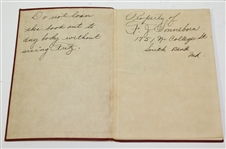 Do not loan
the book out to
any body without
seeing Fritz.
Property of
F. J.
1551 N. College St
South Bend
Ind.